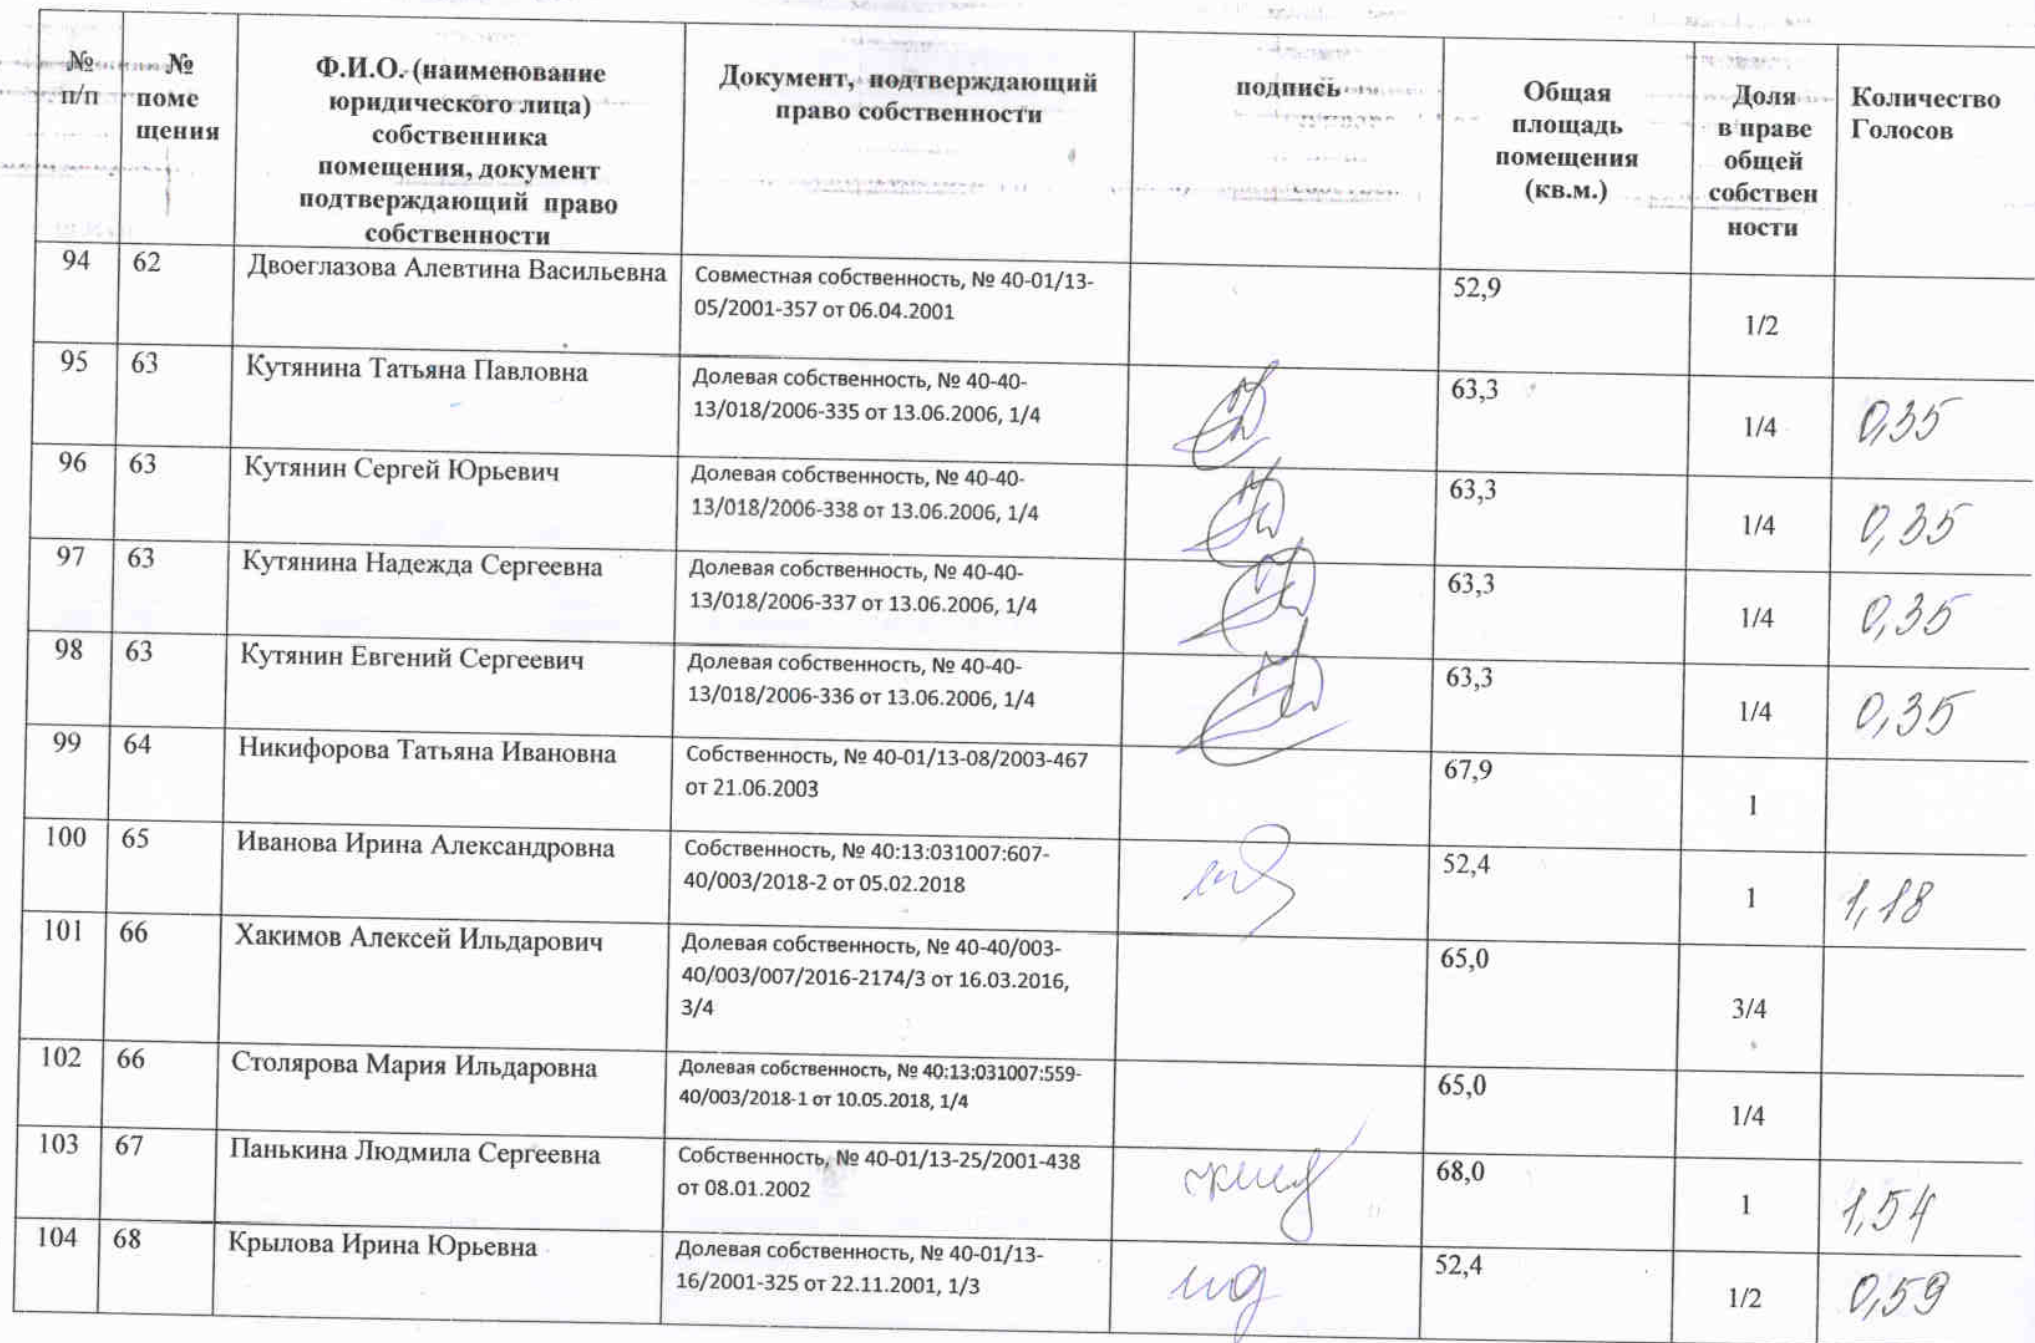 № п/п
№ поме щения
Ф.И.О. (наименование
юридического лица)
собственника
помещения, документ
подтверждающий право
собственности
Документ, подтверждающий
право собственности
подпись
Общая
площадь
помещения
(кв.м.)
Доля
в праве
общей
собствен
ности
Количество
Голосов
94 62 Двоеглазова Алевтина Васильевна Совместная собственность, № 40-01/13-
05/2001-357 от 06.04.2001 52,9 1/2
95 63 Кутянина Татьяна Павловна Долевая собственность, № 40-40-
13/018/2006-335 от 13.06.2006, 1/4 63,3 1/4 0,35
96 63 Кутянин Сергей Юрьевич Долевая собственность, № 40-40-
13/018/2006-338 от 13.06.2006, 1/4 63,3 1/4 0,35
97 63 Кутянина Надежда Сергеевна Долевая собственность, № 40-40-
13/018/2006-337 от 13.06.2006, 1/4 63,3 1/4 0,35
98 63 Кутянин Евгений Сергеевич Долевая собственность, № 40-40-
13/018/2006-336 от 13.06.2006, 1/4 63,3 1/4 0,35
99 64 Никифорова Татьяна Ивановна Собственность, № 40-01/13-08/2003-467
от 21.06.2003 67,9 1
100 65 Иванова Ирина Александровна Собственность, № 40:13:031007:607-
40/003/2018-2 от 05.02.2018 52,4 1 1,18
101 66 Хакимов Алексей Ильдарович Долевая собственность, № 40-40/003-
40/003/007/2016-2174/3 от 16.03.2016,
3/4 65,0 3/4
102 66 Столярова Мария Ильдаровна Долевая собственность, № 40:13:031007:559-
40/003/2018-1 от 10.05.2018, 1/4 65,0 1/4
103 67 Панькина Людмила Сергеевна Собственность, № 40-01/13-25/2001-438
от 08.01.2002 68,0 1 1,54
104 68 Крылова Ирина Юрьевна Долевая собственность, № 40-01/13-
16/2001-325 от 22.11.2001, 1/3 52,4 1/2 0,59